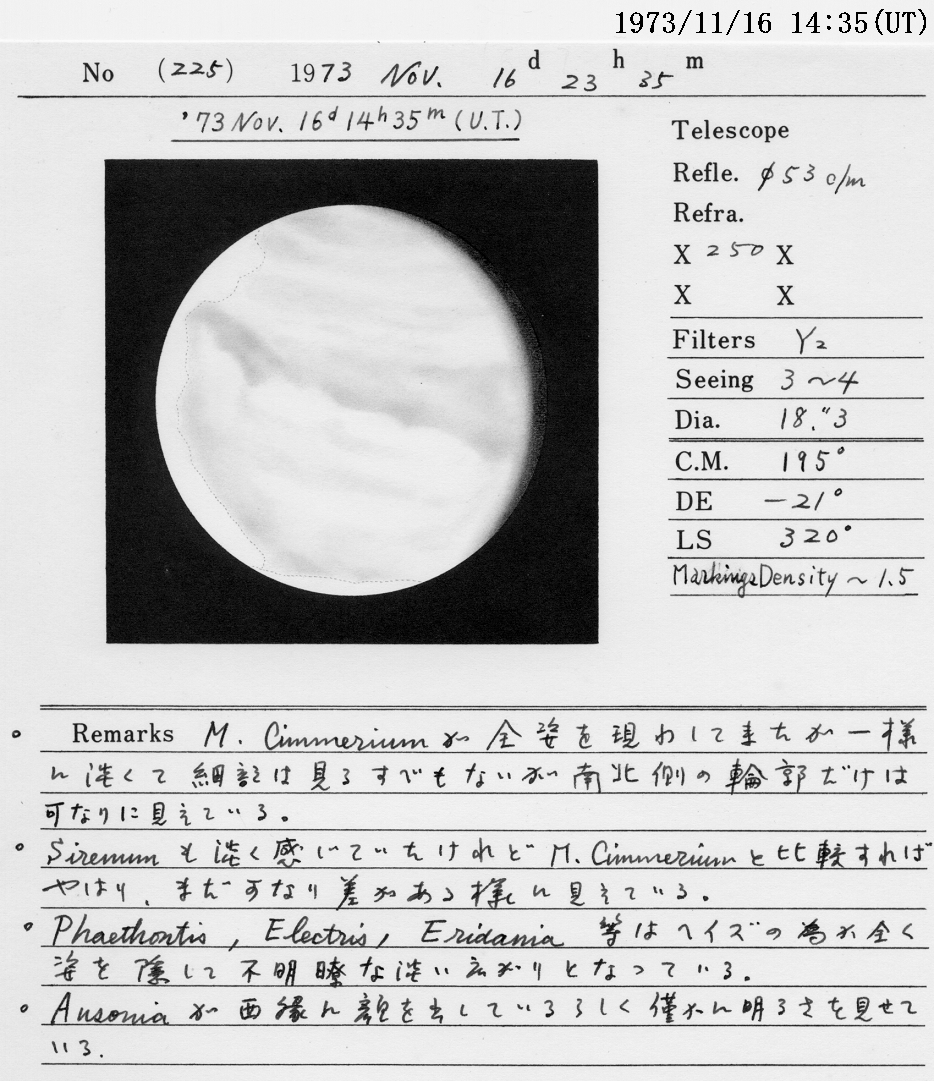 1973/11/16 14:35(UT)
No (225) 1973 Nov. 16 d 23 h 35 m
'73 Nov. 16d 14h 35m (U.T.)
Telescope
Refle. φ53 c/m
Refra.
X 250 X
X X
Filters Y2
Seeing 3~4
Dia. 18."3
C.M. 195°
DE -21°
LS 320°
Markings Density ~ 1.5
Remarks M. Cimmerium が全姿を現わしてきたが一様
に淡くて細部は見るすべもないが南北側の輪郭だけは
可なりに見えている。
Sirenum も淡く感じていたけれど M. Cimmerium と比較すれば
やはり、まだ可なり差がある様に見えている。
Phaethontis, Electris, Eridania 等はヘイズの為か全く
姿を隠して不明瞭な淡い広がりとなっている。
Ausonia が西縁に顔を出しているらしく僅かに明るさを見せて
いる.